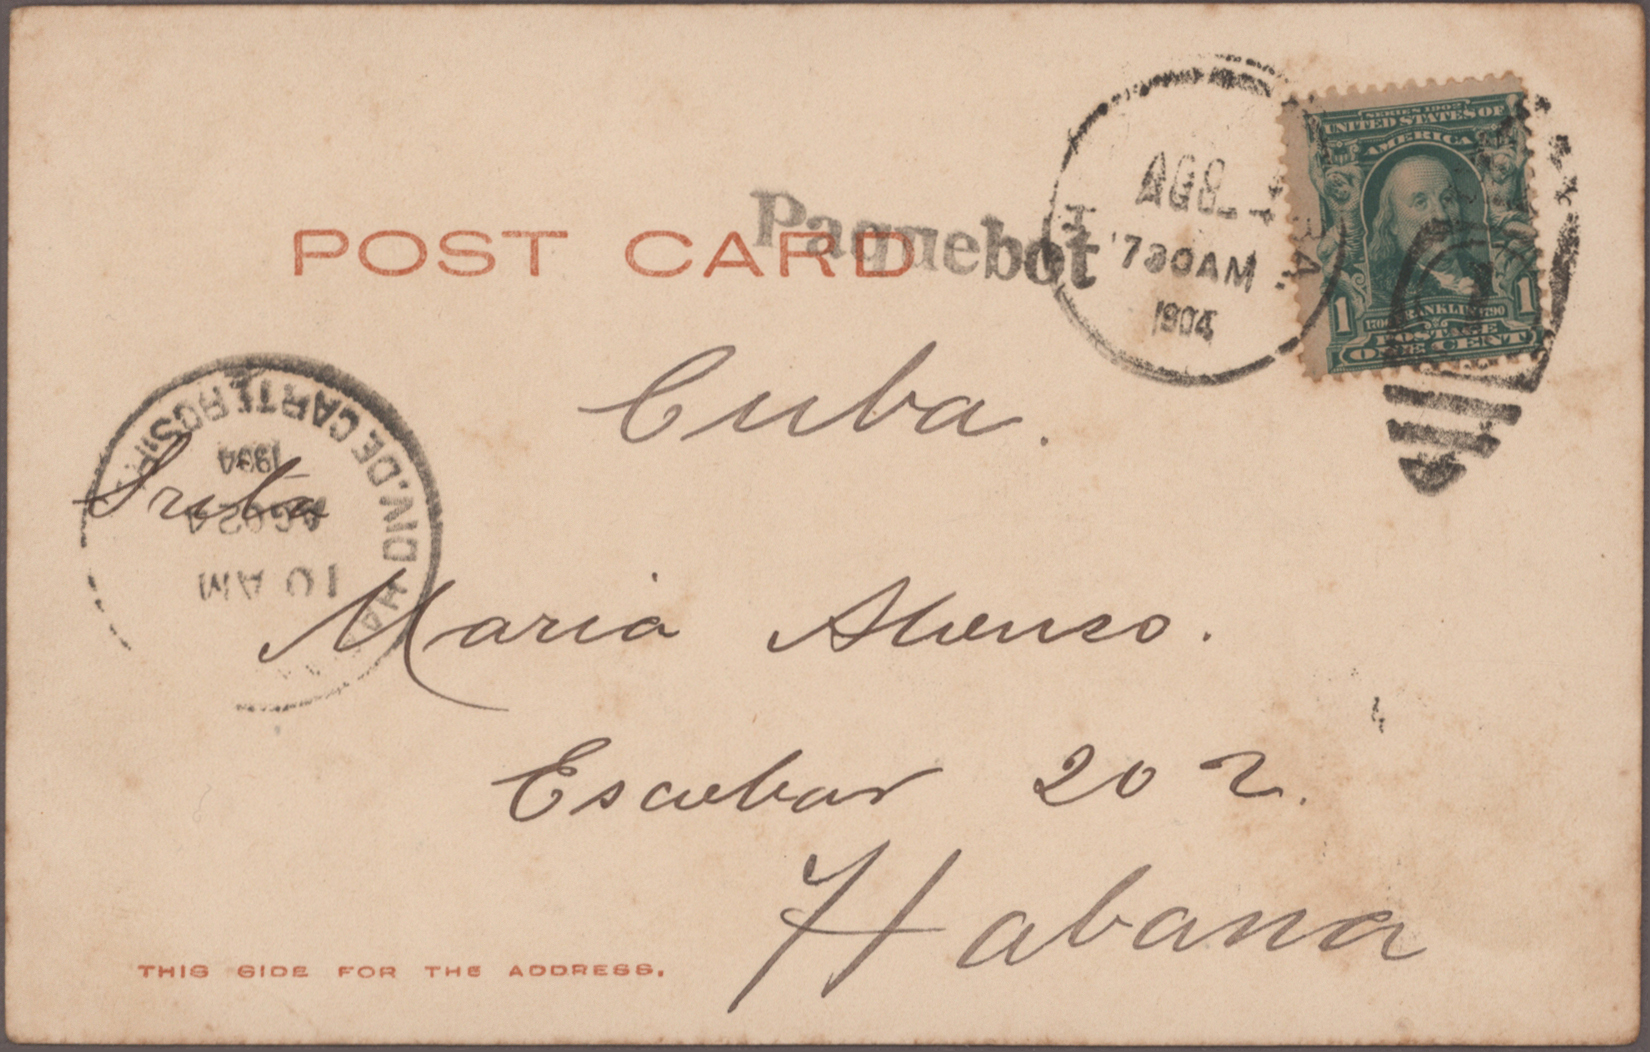 SERIES 1902
UNITED STATES OF
AMERICA
1706 FRANKLIN 1790
1 POSTAGE 1
ONE CENT
AGO
730AM
1904
Paquebot
POST CARD
Cuba.
DIV. DE CARTEROS
1904
AGO 24
10 AM
Srita
Maria Alonso.
Escobar 202.
Habana
THIS SIDE FOR THE ADDRESS.